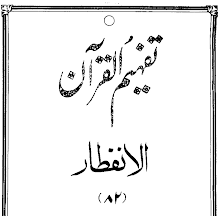 تفہیم القرآن
الانفطار
(۸۲)